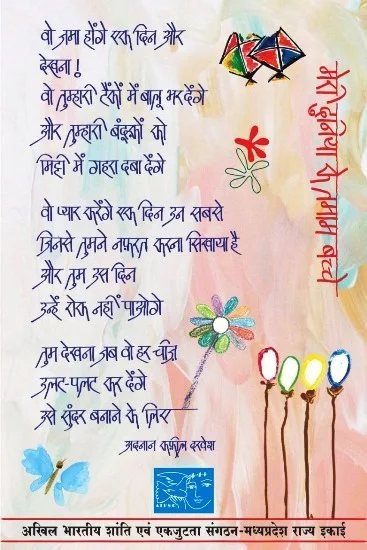 मेरी दुनिया के तमाम बच्चे
वो जमा होंगे एक दिन और
देखना!
वो तुम्हारी टैंकों में बालू भर देंगे
और तुम्हारी बंदूकों को
मिट्टी में गहरा दबा देंगे
वो प्यार करेंगे एक दिन उन सबसे
जिनसे तुमने नफ़रत करना सिखाया है
और तुम उस दिन
उन्हें रोक नहीं पाओगे
तुम देखना अब वो हर चीज़
उलट-पलट कर देंगे
उसे सुंदर बनाने के लिए
अदनान कफ़ील दरवेश
अखिल भारतीय शांति एवं एकजुटता संगठन-मध्यप्रदेश राज्य इकाई